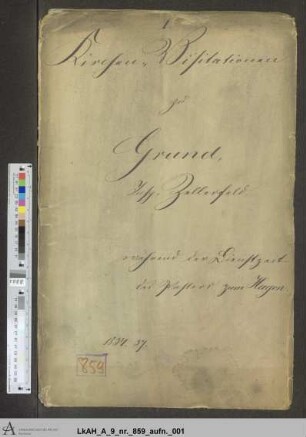 1
Kirchen-Visitationen
zu
Grund,
Insp. Zellerfeld.
während der Dienstzeit
des Pastors zum Hagen
1834. 37.
859
LkAH_A_9_nr._859_aufn._001